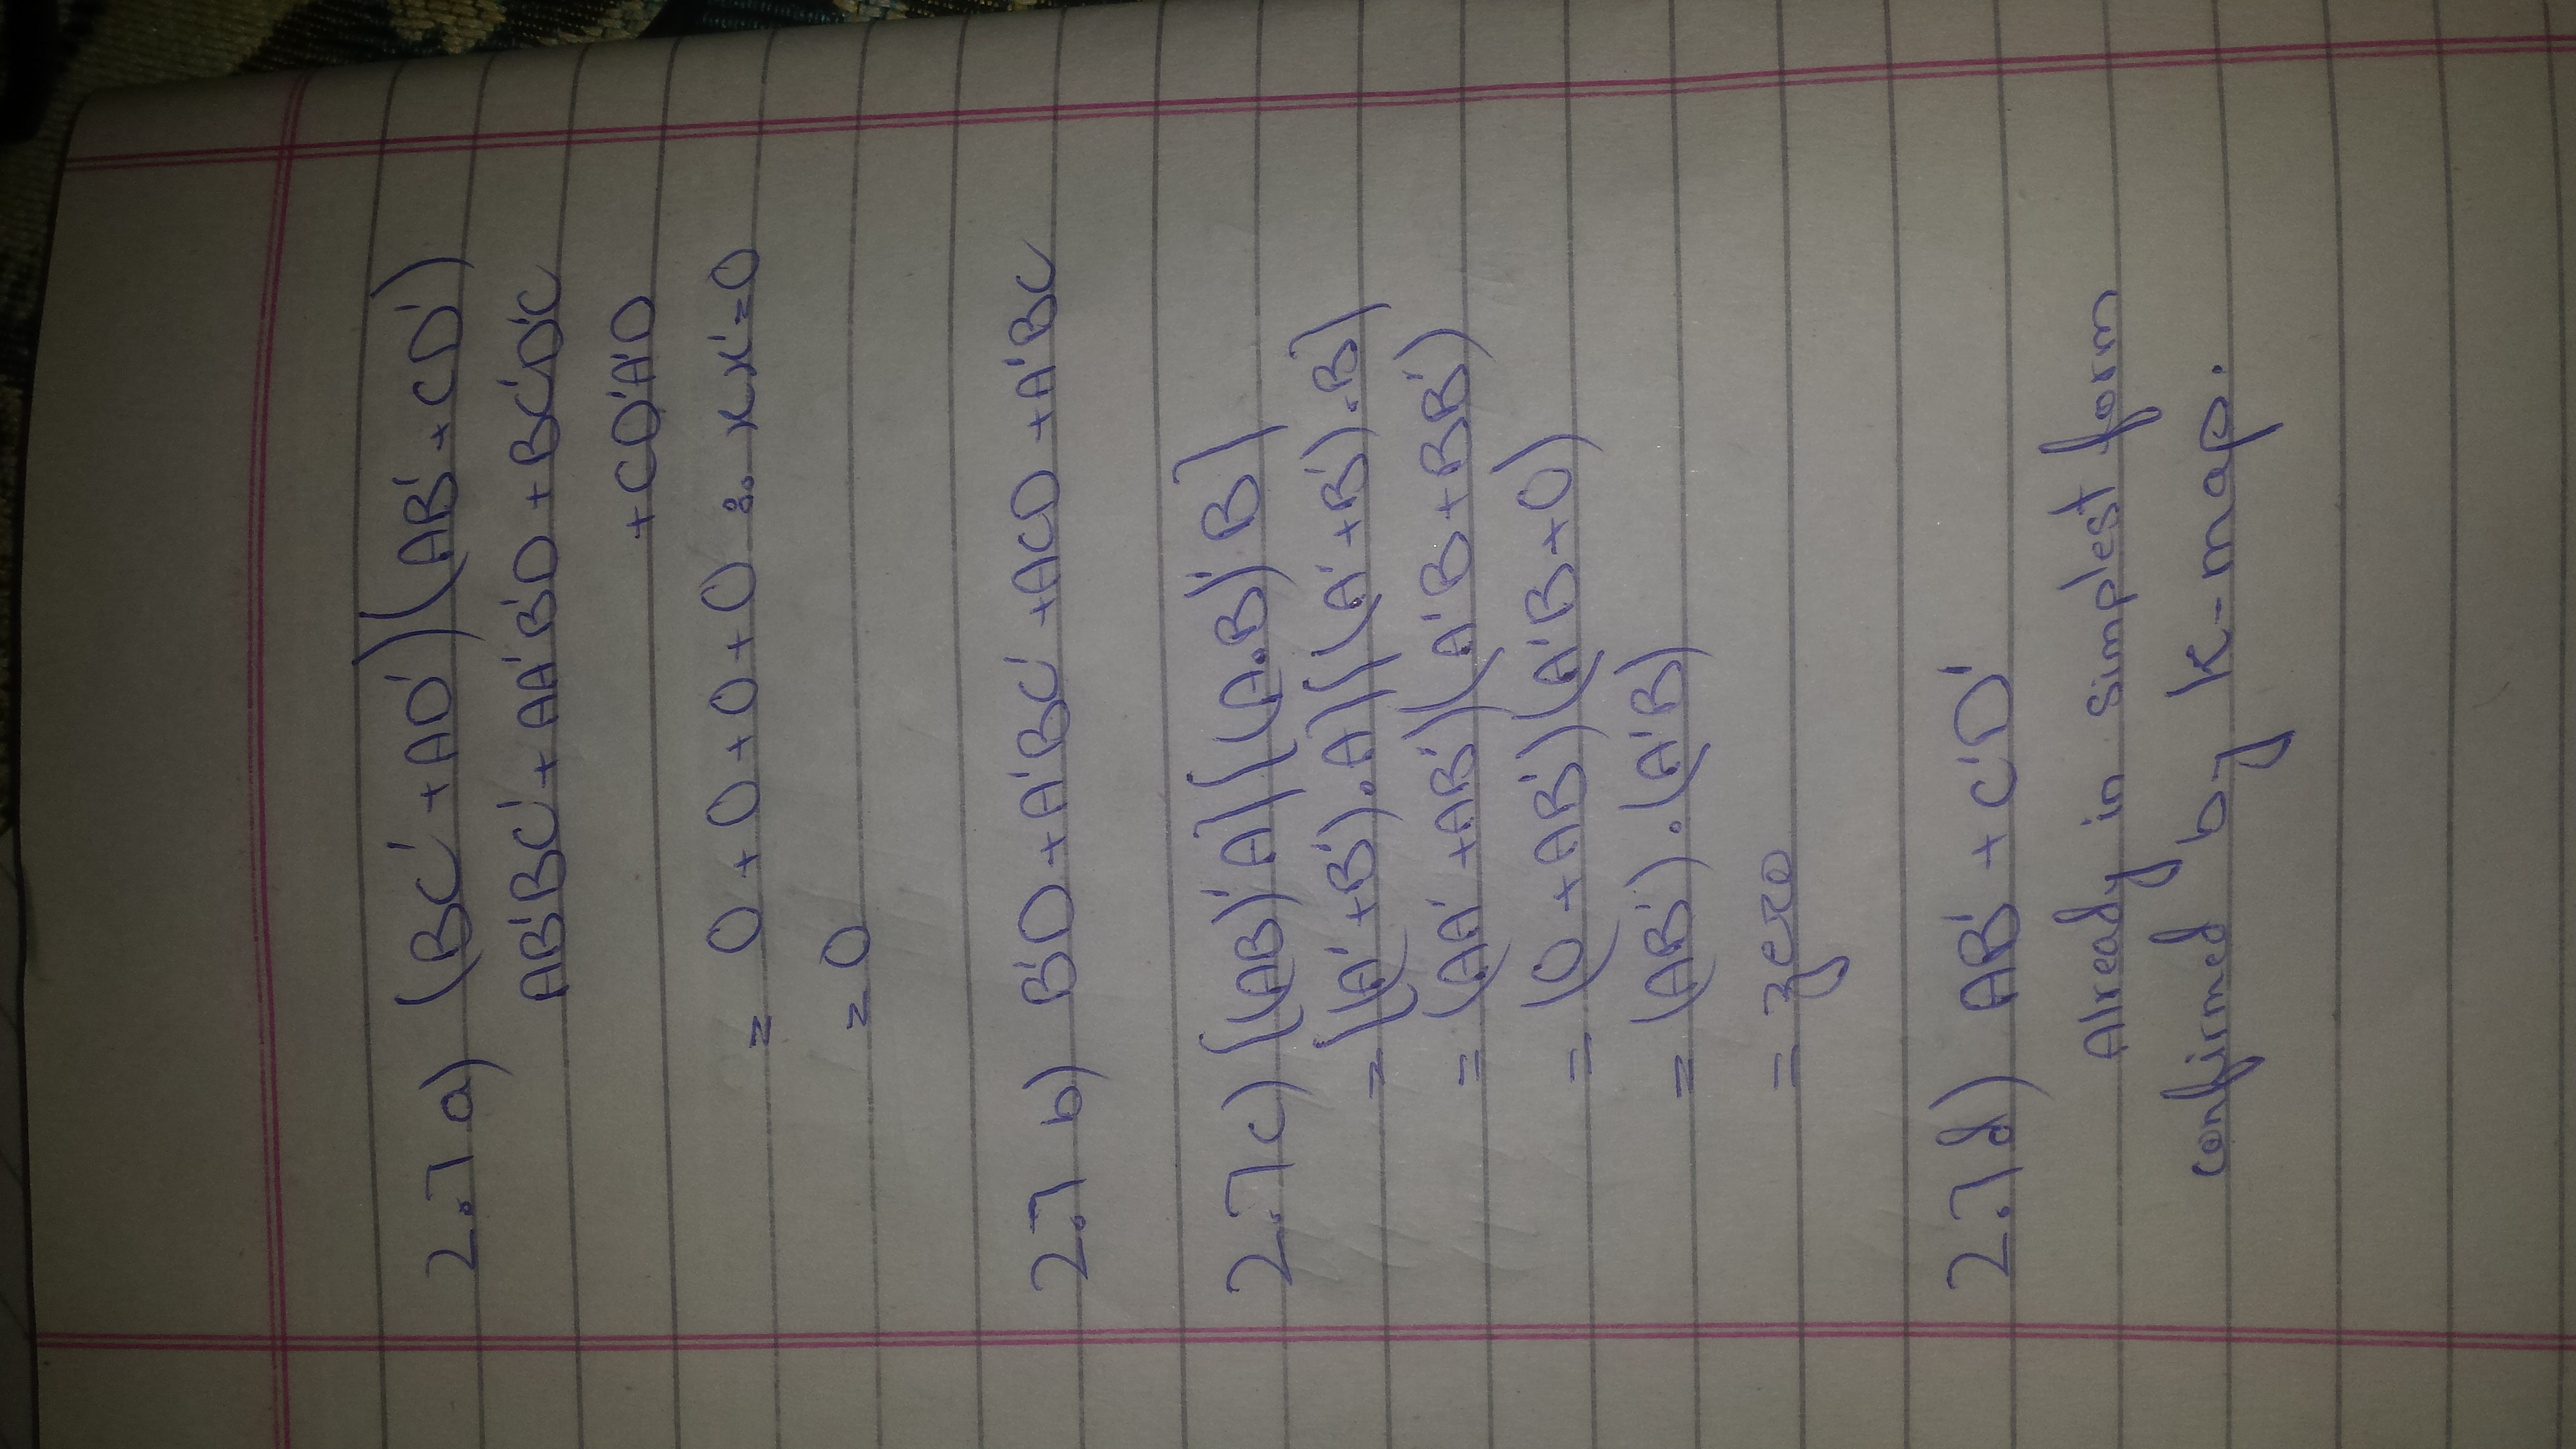 2.7 a) (BC' + AD')(AB' + CD')
AB'BC' + AA'B'D + BC'D'C
+ CD'A'D
= 0 + 0 + 0 + 0 ∵ xx' = 0
= 0
2.7 b) B'D + A'BC' + ACD + A'BC
2.7 c) [(AB)'A][(A.B)'B]
= [(A' + B').A][(A' + B').B]
= (AA' + AB')(A'B + BB')
= (0 + AB')(A'B + 0)
= (AB').(A'B)
= zero
2.7 d) AB' + C'D'
Already in simplest form
confirmed by K-map.